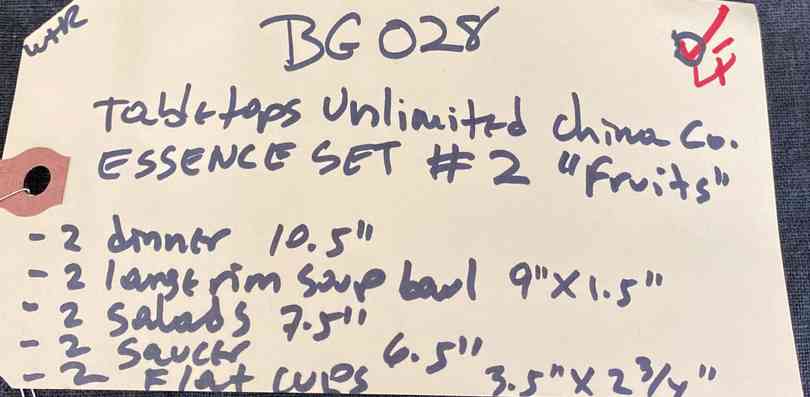 W+R
BG028
Tabletops Unlimited China Co.
ESSENCE SET #2 "Fruits"
- 2 dinner 10.5"
- 2 large rim soup bowl 9"X1.5"
- 2 salads 7.5"
- 2 saucer 6.5"
- 2 Flat cups 3.5"X2 3/4"